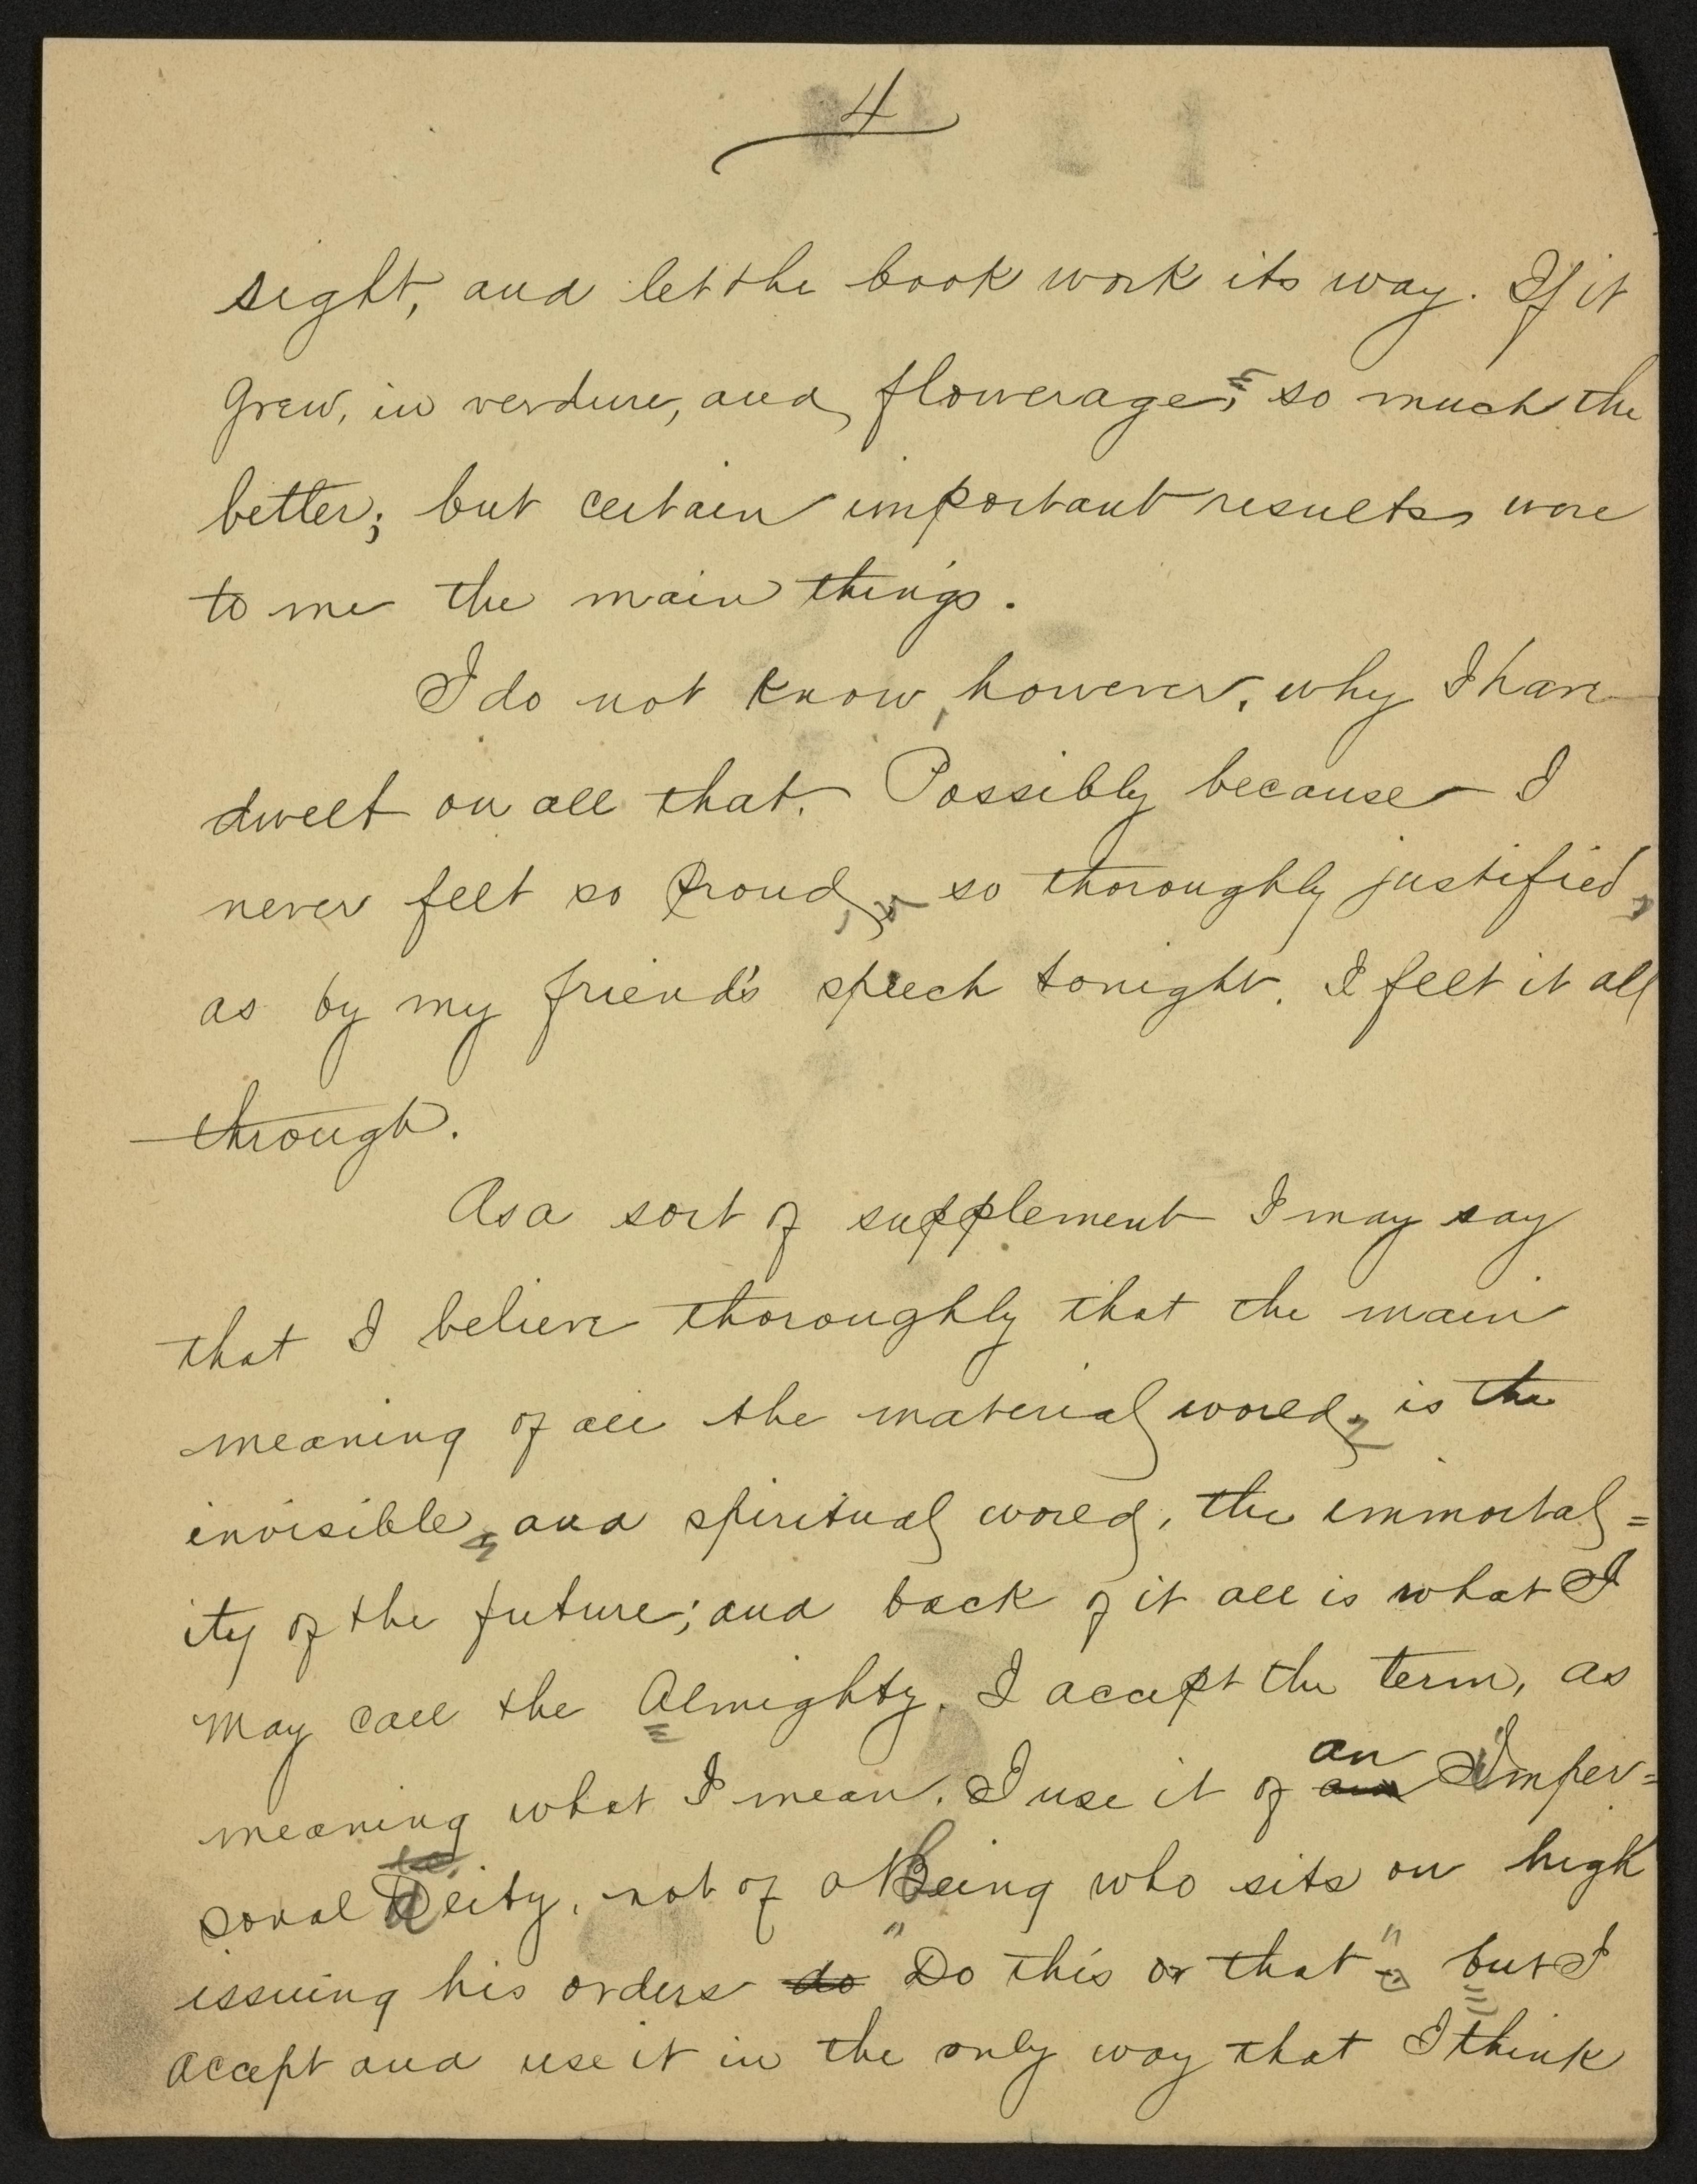 4
sight, and let the book work its way. If it
grew, in verdure, and flowerage, so much the
better; but certain important results, were
to me the main things.
I do not know, however, why I have
dwelt on all that. Possibly because I
never felt so proud, so thoroughly justified,
as by my friend's speech tonight. I felt it all
through.
As a sort of supplement I may say
that I believe thoroughly that the main
meaning of all the material world, is the
invisible and spiritual world, the immortal=
ity of the future; and back of it all is what I
may call the Almighty. I accept the term, as
meaning what I mean. I use it of an Imper=
sonal Deity, not of a Being who sits on high
issuing his orders do "Do this or that" but I
accept and use it in the only way that I think